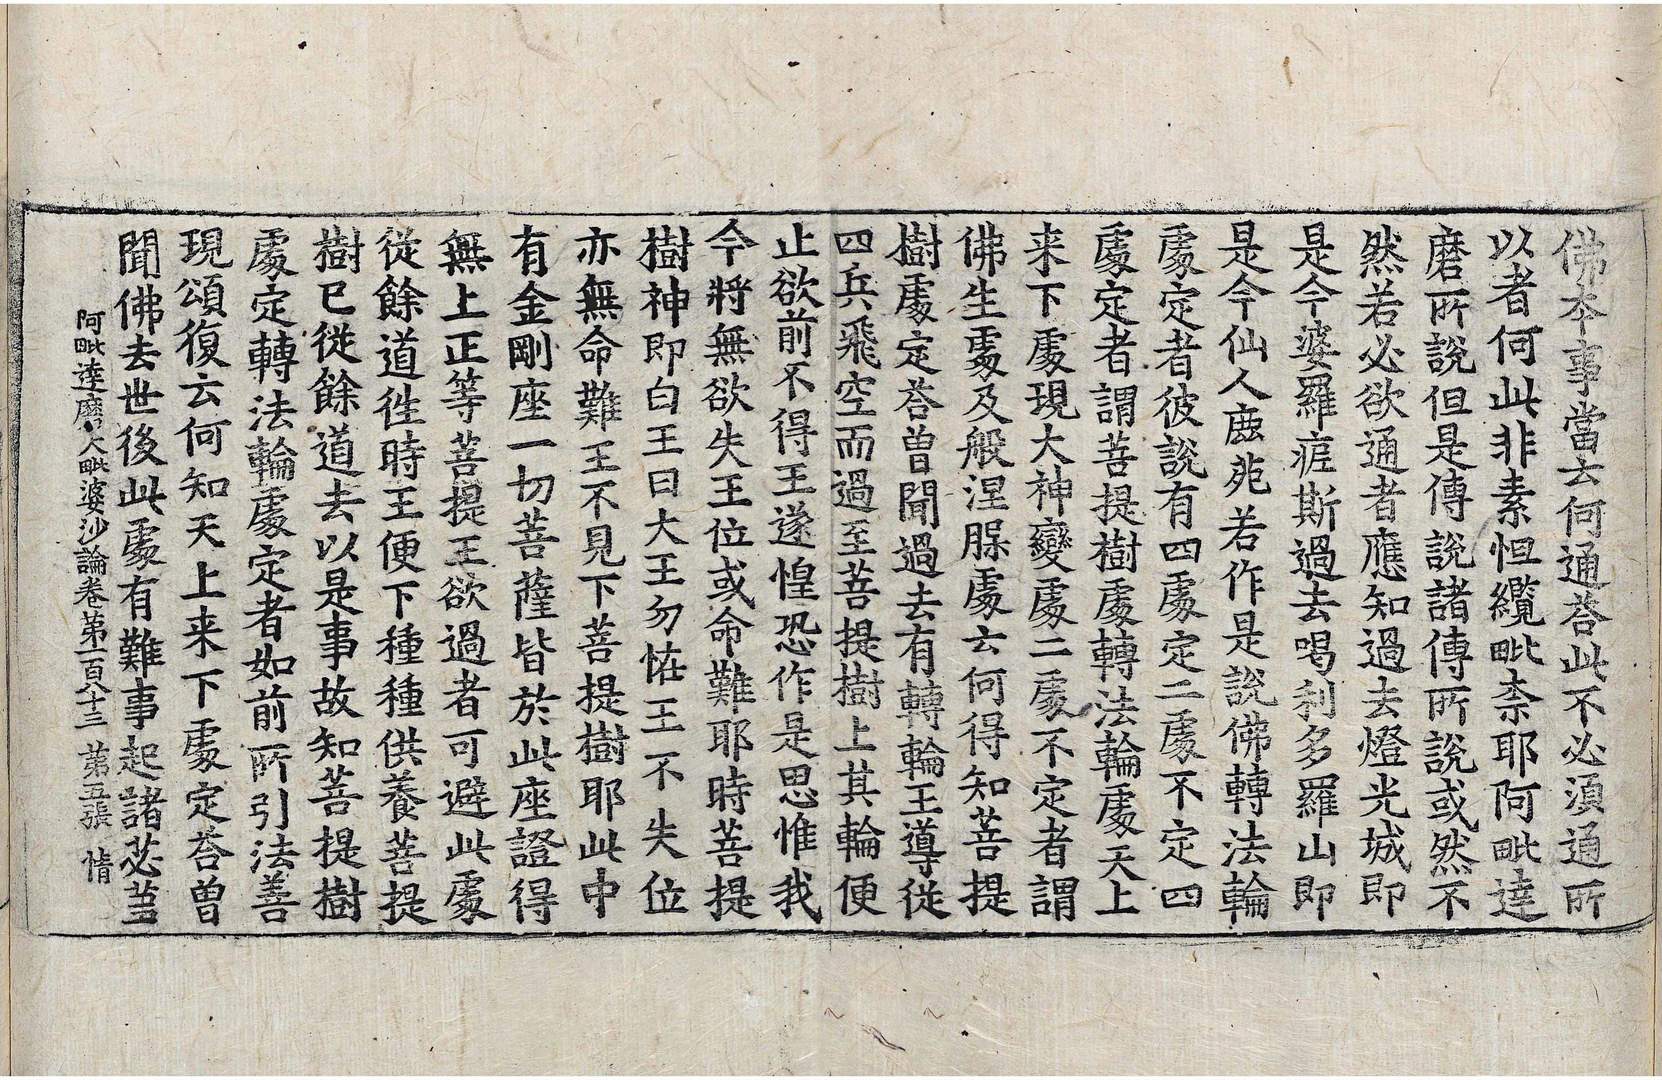 佛本事當云何通荅此不必湏通所
以者何此非素怛纜毗柰耶阿毗達
磨所說但是傳說諸傳所說或然不
然若必欲通者應知過去燈光城即
是今婆羅痆斯過去喝利多羅山即
是今仙人鹿苑若作是說佛轉法輪
處定者彼說有四處定二處不定四
處定者謂菩提樹處轉法輪處天上
来下處現大神變處二處不定者謂
佛生處及般涅槃處云何得知菩提
樹處定荅曾聞過去有轉輪王導從
四兵飛空而過至菩提樹上其輪便
止欲前不得王遂惶恐作是思惟我
今將無欲失王位或命難耶時菩提
樹神即白王曰大王勿恠王不失位
亦無命難王不見下菩提樹耶此中
有金剛座一切菩薩皆於此座證得
無上正等菩提王欲過者可避此處
從餘道徃時王便下種種供養菩提
樹已從餘道去以是事故知菩提樹
處定轉法輪處定者如前所引法善
現頌復云何知天上来下處定荅曾
聞佛去世後此處有難事起諸苾芻
阿毗達磨大毗婆沙論卷第一百八十三 第五張 情